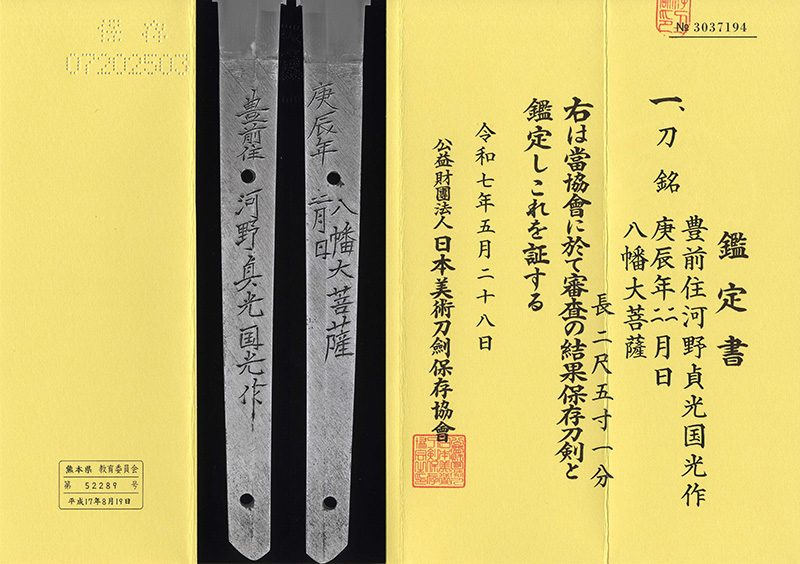 № 3037194
鑑定書
一、刀 銘 豊前住河野貞光国光作
庚辰年二二月日
八幡大菩薩
長 二尺五寸一分
右は當協會に於て審査の結果保存刀剣と
鑑定しこれを証する
令和七年五月二十八日
公益財團法人 日本美術刀劍保存協會
庚辰年
八幡大菩薩
二二月日
豊前住
河野貞光国光作
保存
07202503
熊本県 教育委員会
第 52289 号
平成17年8月19日